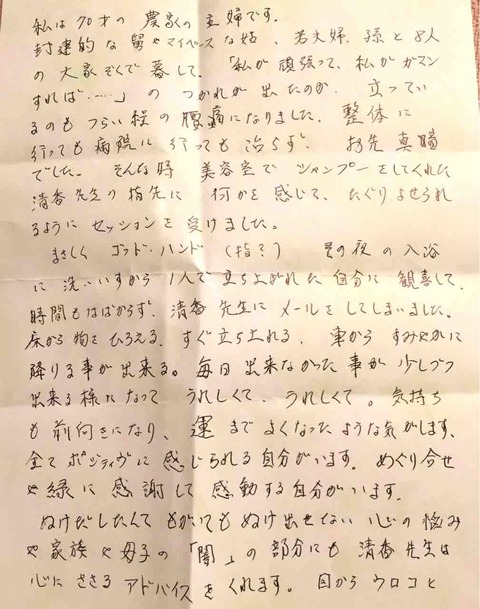 私は70才の農家の主婦です。
封建的な舅やマイペースな姑、若夫婦、孫と8人
の大家ぞくで暮して、「私が頑張って、私がガマン
すれば……」のつかれが出たのか、立ってい
るのもつらい程の腰痛になりました。整体に
行っても病院に行っても治らず、お先真暗
でした。そんな時美容室でシャンプーをしてくれた
清香先生の指先に何かを感じて、たぐりよせられ
るようにセッションを受けました。
まさしくゴッド・ハンド(指?)その夜の入浴
に洗いいすから1人で立ち上がれた自分に観喜して、
時間もはばからず、清香先生にメールをしてしまいました。
床から物をひろえる、すぐ立ち上れる、車からすみやかに
降りる事が出来る。毎日出来なかった事が少しづつ
出来る様になってうれしくて、うれしくて。気持ち
も前向きになり、運までよくなったような気がします、
全てポジティヴに感じられる自分がいます。めぐり合せ
や縁に感謝して感動する自分がいます。
ぬけだしたくてもがいてもぬけ出せない心の悩み
や家族や母子の「闇」の部分にも清香先生は
心にささるアドバイスをくれます。目からウロコと